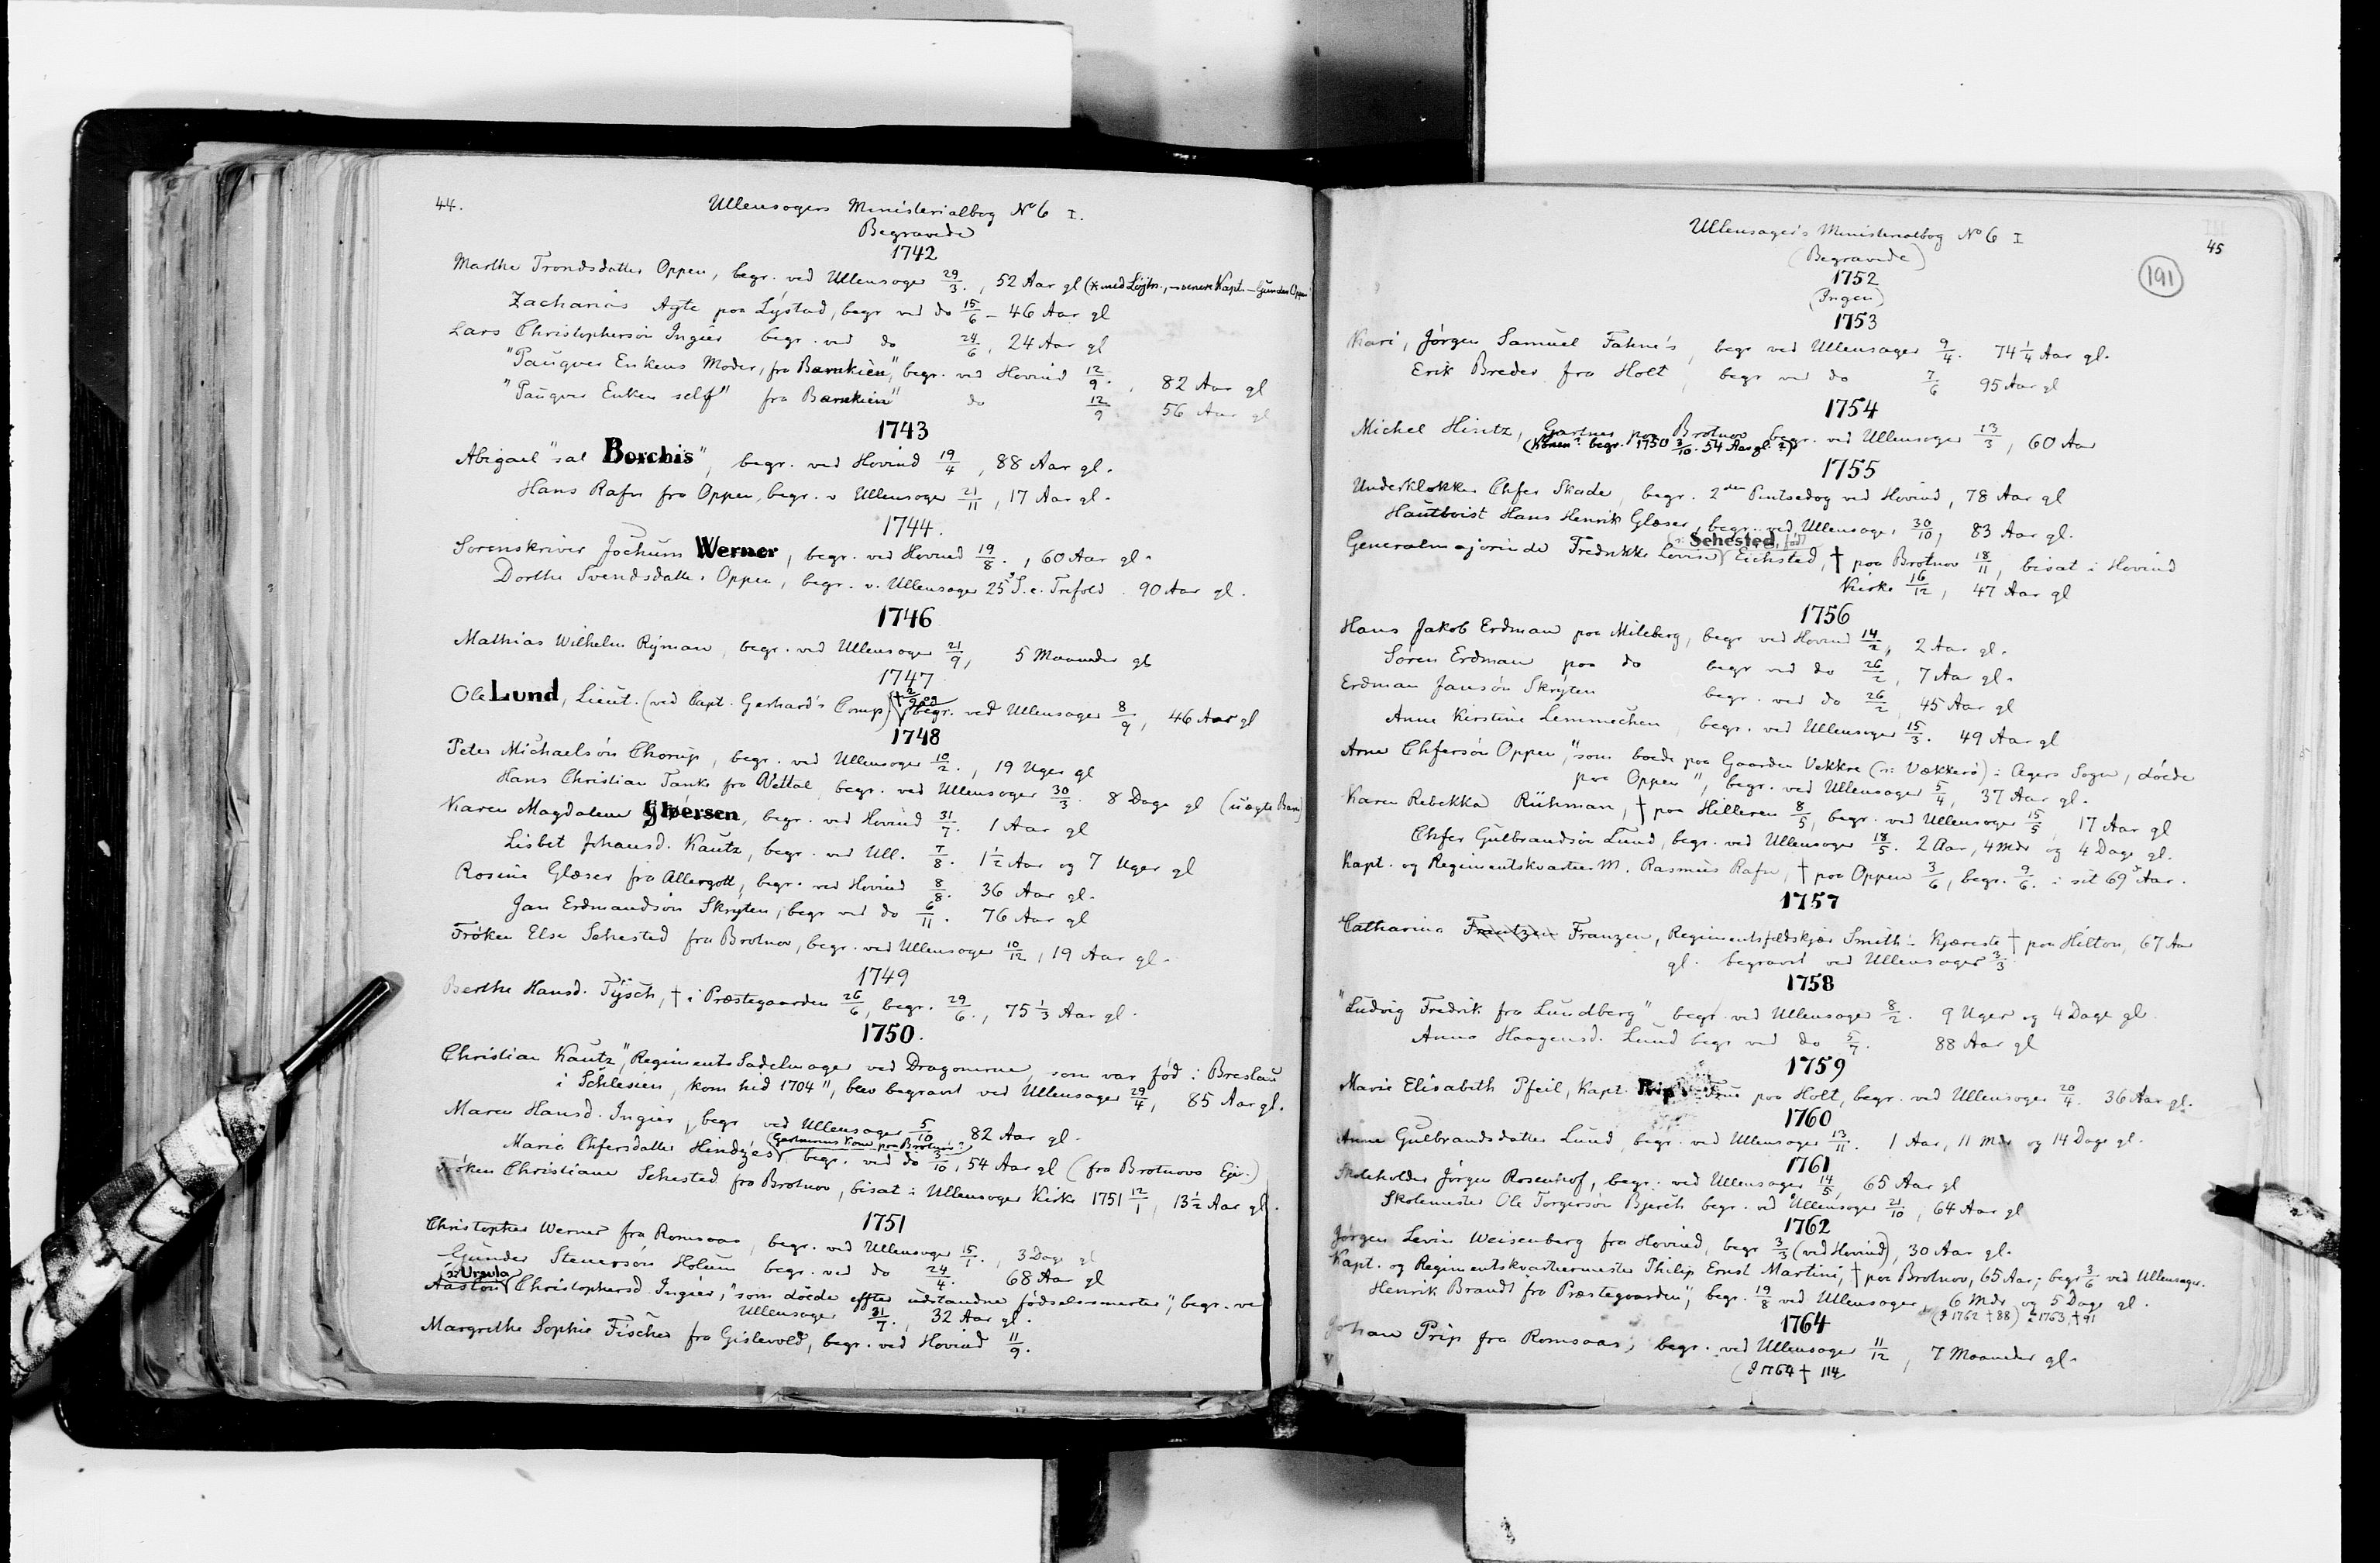 44.
Ullensagers Ministerialbog No 6 I.
Begravede
1742
Marthe Trondsdatter Oppen, begr. ved Ullensager 29/3., 52 Aar gl (x med Løjtn., senere Kapt. Gunder Oppen
Zacharias Agte paa Lystad, begr ved do 15/6 - 46 Aar gl
Lars Christophersøn Ingier begr. ved do 24/6, 24 Aar gl
"Pauqver Enkens Moder, fra Barnkien", begr. ved Hovind 12/9., 82 Aar gl
"Pauqver Enken self" fra Barnkien" do 12/9 56 Aar gl
1743
Abigael "sal Borchis", begr. ved Hovind 19/4, 88 Aar gl.
Hans Rafn fra Oppen, begr. v Ullensager 21/11, 17 Aar gl.
1744.
Sorenskriver Jochum Werner, begr. ved Hovind 19/8., 60 Aar gl.
Dorthe Svendsdatter Oppen, begr. v. Ullensager 25 S. e. Trefold. 90 Aar gl.
1746
Mathias Wilhelm Ryman, begr. ved Ullensager 21/9, 5 Maaneder gl
1747
Ole Lund, Lieut. (ved Capt. Gerhard's Comp) († 2/9 og begr. ved Ullensager 8/9, 46 Aar gl
1748
Peter Michaelsøn Chorup, begr. ved Ullensager 10/2., 19 Uger gl
Hans Christian Tanke fra Vettal, begr. ved Ullensager 30/3. 8 Dage gl (uægte Barn)
Karen Magdalene Gløersen, begr. ved Hovind 31/7. 1 Aar gl
Lisbet Johansd. Kautz, begr. ved Ull. 7/8. 1 1/2 Aar og 7 Uger gl
Rosine Glæser fra Allergott, begr. ved Hovind 8/8. 36 Aar gl.
Jan Erdmandsøn Skryten, begr ved do 6/11. 76 Aar gl
Frøken Else Sehested fra Brotnov, begr. ved Ullensager 10/12, 19 Aar gl.
1749
Berthe Hansd. Tysch, † i Præstegaarden 26/6, begr. 29/6., 75 1/3 Aar gl.
1750.
Christian Kautz, "Regiments Sadelmager ved Dragonerne, som var fød i Breslau
i Schlesien, kom hid 1704", blev begravet ved Ullensager 29/4, 85 Aar gl.
Maren Hansd. Ingier, begr ved Ullensager 5/10 82 Aar gl.
(Gartnerens Kone paa Brotnov?)
Maria Chfersdatter Hindzes begr. ved do 3/10, 54 Aar gl (fra Brotnovs Eje.)
Frøken Christiane Sehested fra Brotnov, bisat i Ullensager Kirke 1751 12/1, 13 1/2 Aar gl.
1751
Christopher Werner fra Romsaas, begr. ved Ullensager 15/1., 3 Dage gl
Gunder Stenersøn Holum begr. ved do 24/4. 68 Aar gl
(ɔ: Ursula)
Aaston Christophersd. Ingier, "som døede effter udstandne fødselssmerter", begr. ved
Ullensager 31/7. 32 Aar gl.
Margrethe Sophie Fischer fra Gislevold, begr. ved Hovind 11/9.
45
191
Ullensager's Ministerialbog No 6 I
(Begravede)
1752
(Ingen)
1753
Kari, Jørgen Samuel Fahne's, begr ved Ullensager 9/4. 74 1/4 Aar gl.
Erik Breder fra Holt, begr ved do 7/6 95 Aar gl
1754
Michel Hintz, Gartner paa Brotnov begr. ved Ullensager 13/3, 60 Aar
(Konen? begr. 1750 3/10. 54 Aar gl.?)
1755
Underklokker Chfer Skade, begr. 2den Pintsedag ved Hovind, 78 Aar gl
Hautboist Hans Henrik Glæser, begr. ved Ullensager 30/10, 83 Aar gl.
(ɔ: Sehested, fød)
Generalmajorinde Fredrikke Lovise Eichsted, † paa Brotnov 18/11, bisat i Hovind
Kirke 16/12, 47 Aar gl
1756
Hans Jakob Erdman paa Mileberg, begr ved Hovind 14/2, 2 Aar gl.
Søren Erdman paa do begr ved do 26/2, 7 Aar gl.
Erdman Jansøn Skryten begr. ved do 26/2 45 Aar gl
Anne Kirstine Lemmechen, begr. ved Ullensager 15/3. 49 Aar gl
Arne Chfersøn Oppen, "som boede paa Gaarden Vekkre (ɔ: Vækkerø) i Agers Sogn, døede
paa Oppen", begr. ved Ullensager 5/4, 37 Aar gl.
Karen Rebekka Rühman, † paa Hilleren 8/5, begr. ved Ullensager 15/5 17 Aar gl
Chfer Gulbrandsøn Lund, begr. ved Ullensager 18/5. 2 Aar, 4 Mdr og 4 Dage gl.
Kapt. og Regimentskvarter M. Rasmus Rafn, † paa Oppen 3/6, begr. 9/6. i sit 69 Aar.
1757
Catharina Frantzen Franzen, Regimentsfeldskjær Smith's Kjæreste † paa Hilton, 67 Aar
gl. begravet ved Ullensager 3/3
1758
"Ludvig Fredrik fra Lundberg" begr. ved Ullensager 8/2. 9 Uger og 4 Dage gl
Anna Haagensd. Lund begr ved do 5/7. 88 Aar gl
1759
Marie Elisabeth Pfeil, Kapt. Prip's Frue paa Holt, begr. ved Ullensager 20/4. 36 Aar gl.
1760
Anne Gulbrandsdatter Lund, begr. ved Ullensager 13/11. 1 Aar, 11 Mdr og 14 Dage gl.
1761
Skoleholder Jørgen Rosenhof, begr. ved Ullensager 14/5, 65 Aar gl
Skolemester Ole Torgersøn Bjerch begr. ved Ullensager 21/10, 64 Aar gl
1762
Jørgen Levin Weisenberg fra Hovind, begr 3/3 (ved Hovind), 30 Aar gl.
Kapt. og Regimentskvartermester Philip Ernst Martini, † paa Brotnov, 65 Aar; begr 3/6 ved Ullensager.
Henrik Brandt fra Præstegaarden", begr. 19/8 ved Ullensager, 6 Mdr og 5 Dage gl.
(I 1762 † 88) I 1763, † 91
1764
Johan Prip fra Romsaas, begr. ved Ullensager 11/12, 7 Maaneder gl.
(I 1764 † 114